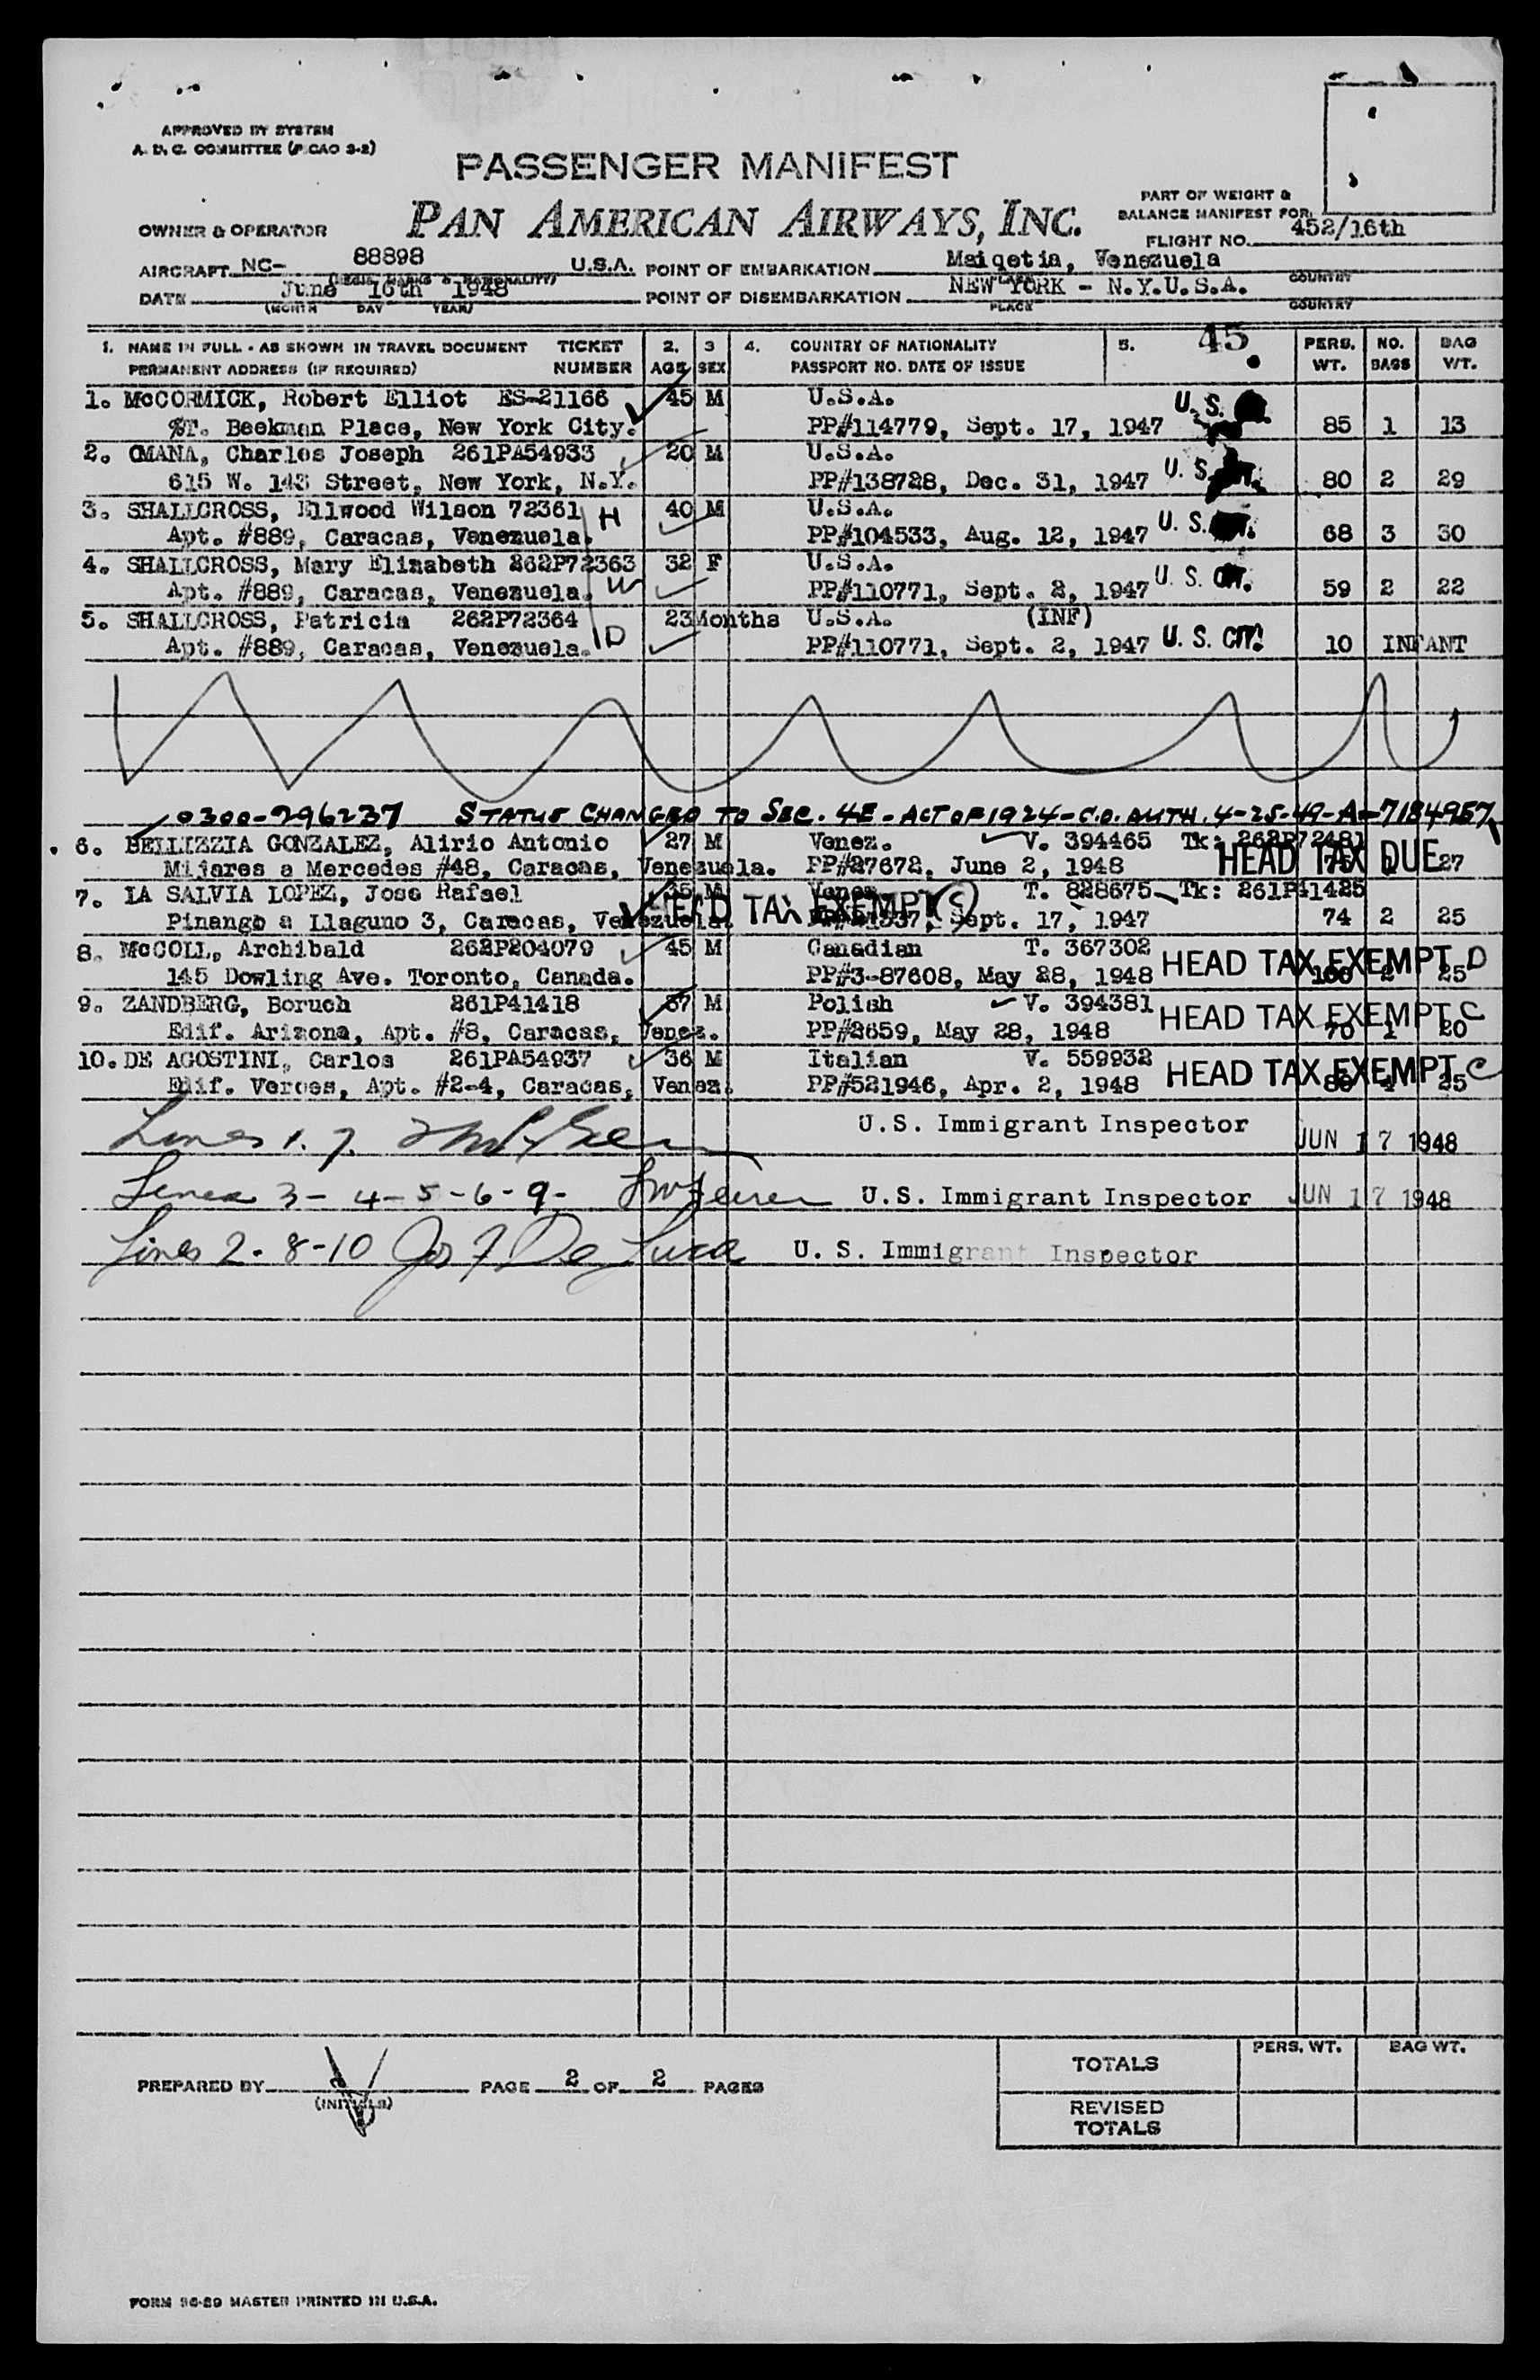 APPROVED BY SYSTEM
A. D. C. COMMITTEE (PICAO 3-2)
PASSENGER MANIFEST
OWNER & OPERATOR PAN AMERICAN AIRWAYS, INC.
PART OF WEIGHT &
BALANCE MANIFEST FOR
FLIGHT NO. 452/16th
AIRCRAFT NC- 88898 U.S.A. POINT OF EMBARKATION Maiqetia, Venezuela
COUNTRY
DATE June 16th 1948 POINT OF DISEMBARKATION NEW YORK - N.Y.U.S.A.
(MONTH DAY YEAR) PLACE COUNTRY
1. NAME IN FULL - AS SHOWN IN TRAVEL DOCUMENT TICKET 2. 3 4. COUNTRY OF NATIONALITY 5. 45 PERS. NO. BAG
PERMANENT ADDRESS (IF REQUIRED) NUMBER AGE SEX PASSPORT NO. DATE OF ISSUE WT. BAGS WT.
1. McCORMICK, Robert Elliot ES-21166 45 M U.S.A. U.S.
Beekman Place, New York City. PP#114779, Sept. 17, 1947 85 1 13
2. OMANA, Charles Joseph 261PA54933 20 M U.S.A.
615 W. 143 Street, New York, N.Y. PP#138728, Dec. 31, 1947 U. S. 80 2 29
3. SHALLCROSS, Ellwood Wilson 72361 H 40 M U.S.A.
Apt. #889, Caracas, Venezuela. PP#104533, Aug. 12, 1947 U. S. 68 3 30
4. SHALLCROSS, Mary Elizabeth 262P72363 32 F U.S.A.
Apt. #889, Caracas, Venezuela. W PP#110771, Sept. 2, 1947 U. S. CIT. 59 2 22
5. SHALLCROSS, Patricia 262P72364 23Months U.S.A. (INF)
Apt. #889, Caracas, Venezuela. D PP#110771, Sept. 2, 1947 U. S. CIT. 10 INFANT
0300-296237 STATUS CHANGED TO SEC. 4E - ACT OF 1924 - C.O. AUTH. 4-25-49-A-7184957
6. BELLIZZIA GONZALEZ, Alirio Antonio 27 M Venez. V. 394465 Tk: 262P72481
Mijares a Mercedes #48, Caracas, Venezuela. PP#27672, June 2, 1948 HEAD TAX DUE 27
7. LA SALVIA LOPEZ, Jose Rafael 35 M Venez. T. 828675 Tk: 261P41425
Pinango a Llaguno 3, Caracas, Venezuela. HEAD TAX EXEMPT C Sept. 17, 1947 74 2 25
8. McCOLL, Archibald 262P204079 45 M Canadian T. 367302
145 Dowling Ave. Toronto, Canada. PP#3-87608, May 28, 1948 HEAD TAX EXEMPT D 100 2 25
9. ZANDBERG, Boruch 261P41418 37 M Polish V. 394381
Edif. Arizona, Apt. #8, Caracas, Venez. PP#2659, May 28, 1948 HEAD TAX EXEMPT C 70 1 20
10. DE AGOSTINI, Carlos 261PA54937 36 M Italian V. 559932
Edif. Veroes, Apt. #2-4, Caracas, Venez. PP#521946, Apr. 2, 1948 HEAD TAX EXEMPT C 25
Lines 1. 7. U.S. Immigrant Inspector JUN 17 1948
Lines 3 - 4 - 5 - 6 - 9 - U.S. Immigrant Inspector JUN 17 1948
Lines 2 - 8 - 10 Jos F De Luca U. S. Immigrant Inspector
TOTALS PERS. WT. BAG WT.
PREPARED BY (INITIALS) PAGE 2 OF 2 PAGES
REVISED
TOTALS
FORM 96-29 MASTER PRINTED IN U.S.A.